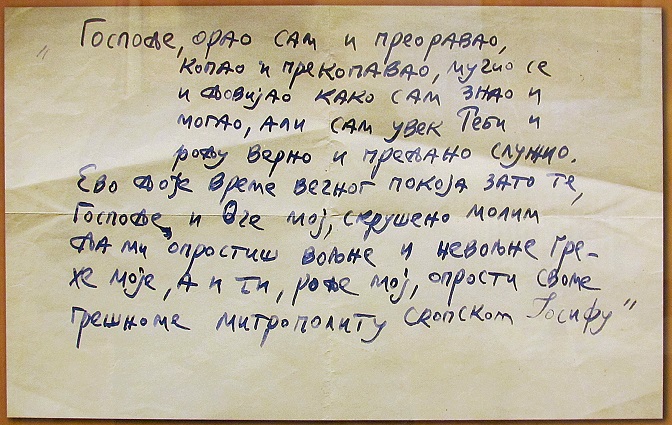 "Господе, орао сам и преоравао,
копао и прекопавао, мучио се
и довијао како сам знао и
могао, али сам увек Теби и
роду верно и предано служио.
Ево дође време вечног покоја зато те,
Господе, и Оче мој, скрушено молим
да ми опростиш вољне и невољне гре-
хе моје, а и ти, роде мој, опрости своме
грешноме митрополиту скопском Јосифу"